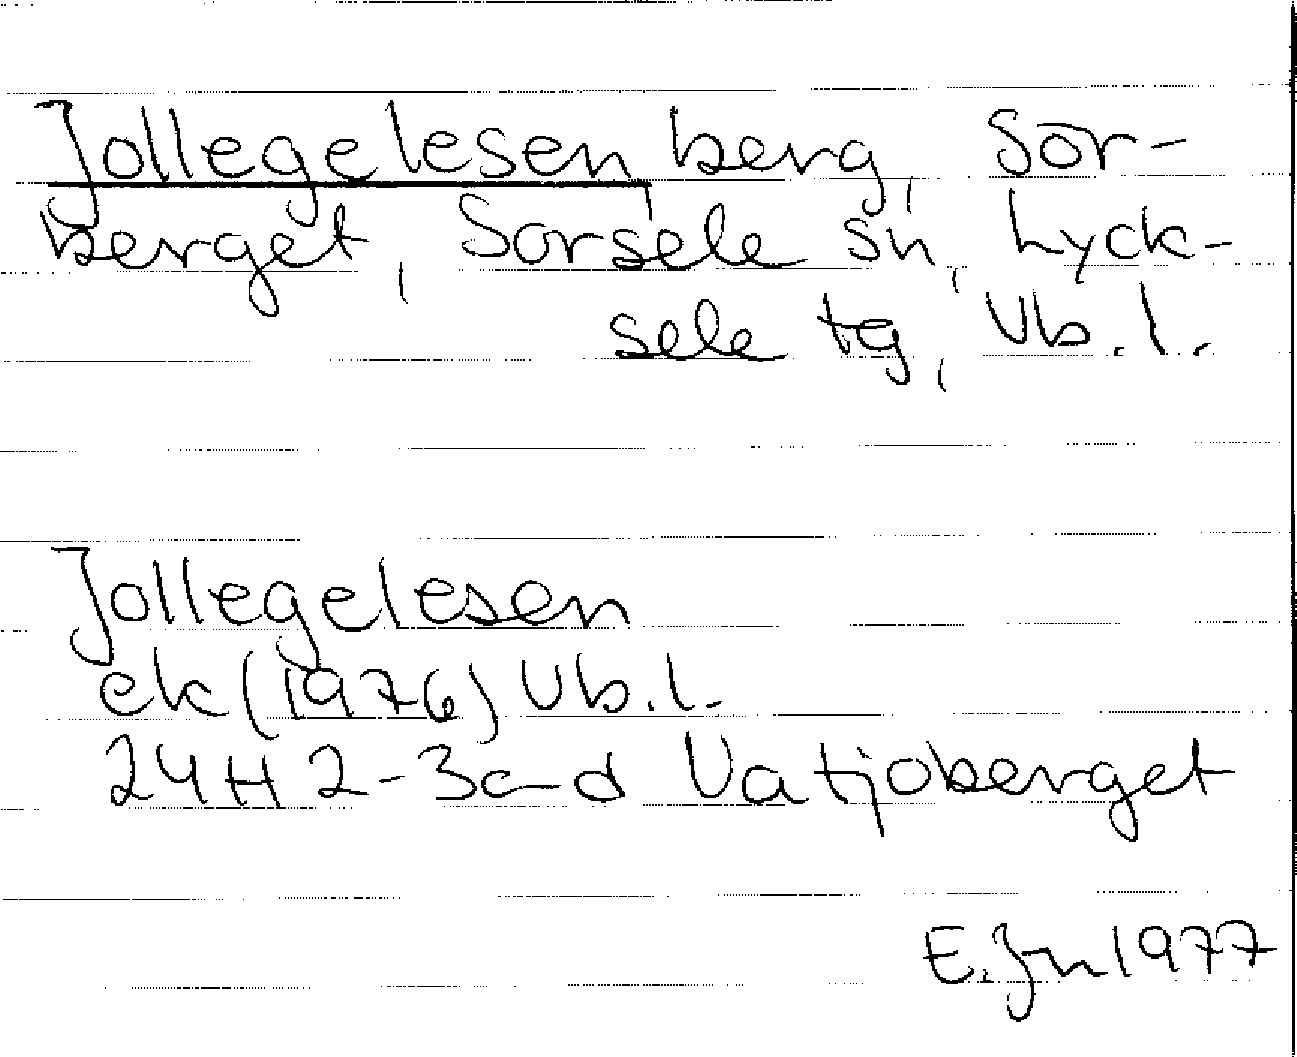 Jollegelesen, berg, Sör-
berget, Sorsele sn, Lyck-
sele tg, Vb.l.
Jollegelesen
ek (1976) Vb.l.
24H 2-3c-d Vatjoberget
E. Jn 1977